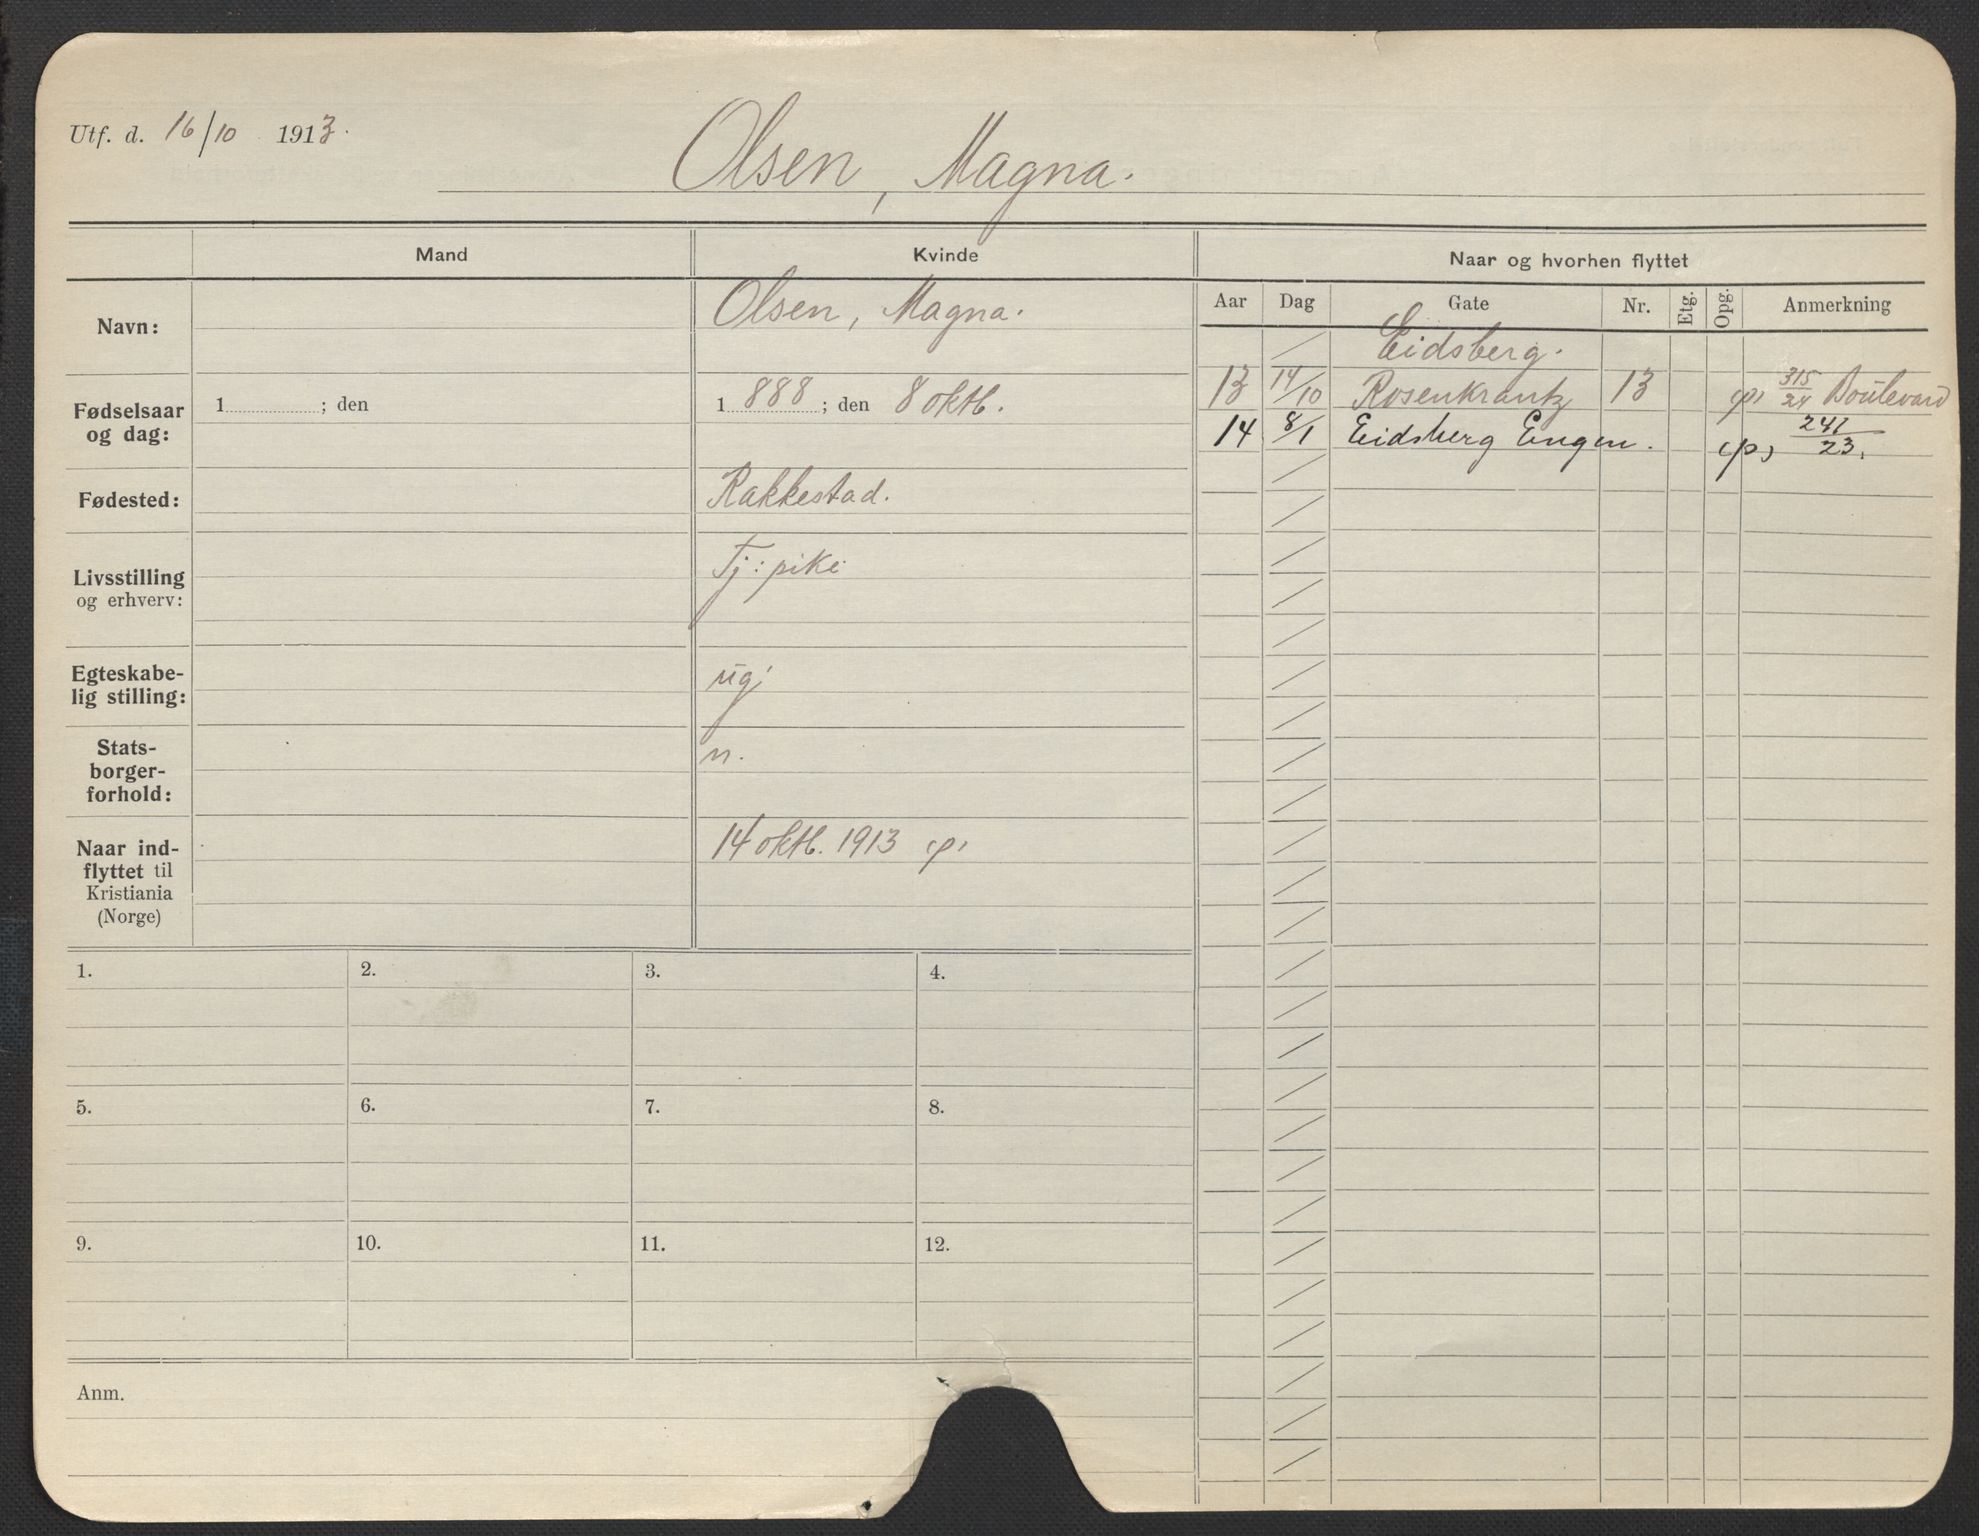 Utf. d. 16/10 1913.
Olsen, Magna.
Mand
Kvinde
Naar og hvorhen flyttet
Navn:
Olsen, Magna.
Fødselsaar
og dag:
1 ; den
1 888 ; den 8 oktb.
Fødested:
Rakkestad.
Livsstilling
og erhverv:
Tj: pike
Egteskabe-
lig stilling:
ug;
Stats-
borger-
forhold:
n.
Naar ind-
flyttet til
Kristiania
(Norge)
14 oktb. 1913
Aar Dag Gate Nr. Etg. Opg. Anmerkning
Eidsberg.
13 14/10 Rosenkrantz 13 315/24 Boulevard
14 8/1 Eidsberg Engen. 241/23.
1. 2. 3. 4.
5. 6. 7. 8.
9. 10. 11. 12.
Anm.